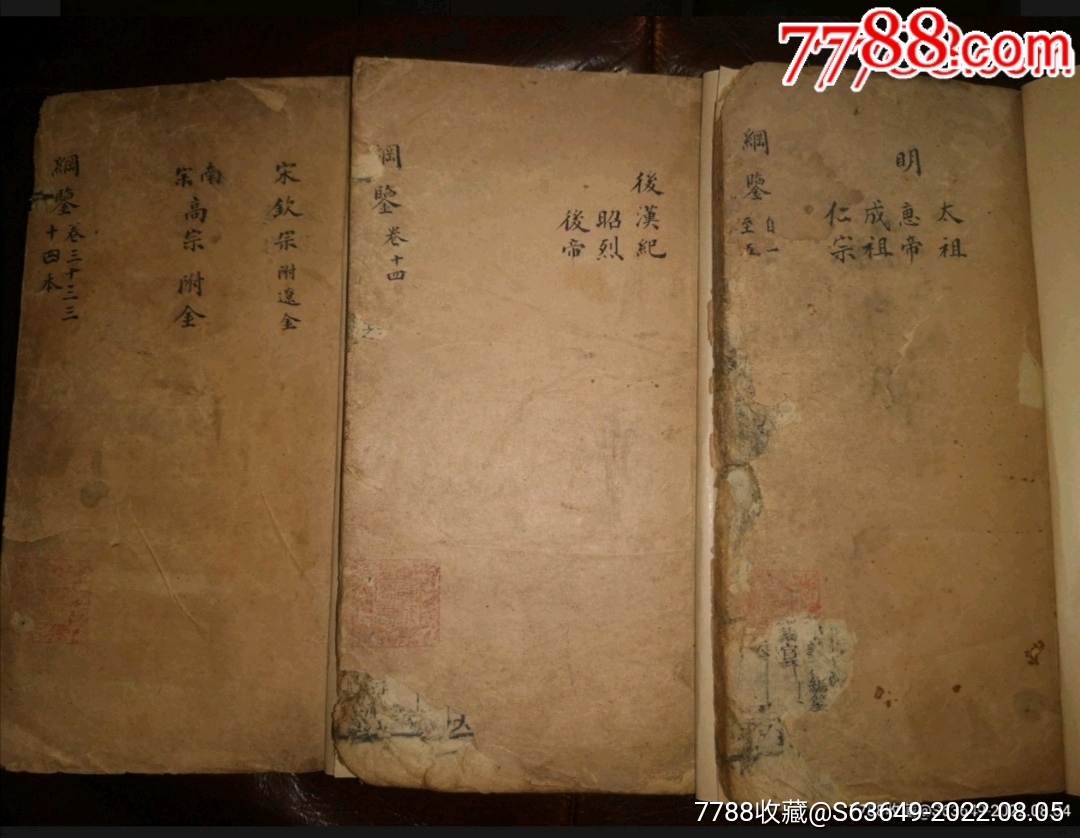 7788.com
宋欽宗附遼金
南宋高宗附金
綱鑒卷三十三三
十四本
後漢紀
昭烈
後帝
綱鑒卷十四
明
太祖
惠帝
成祖
仁宗
綱鑒
自一
至五
7788收藏@S63649 2022.08.05